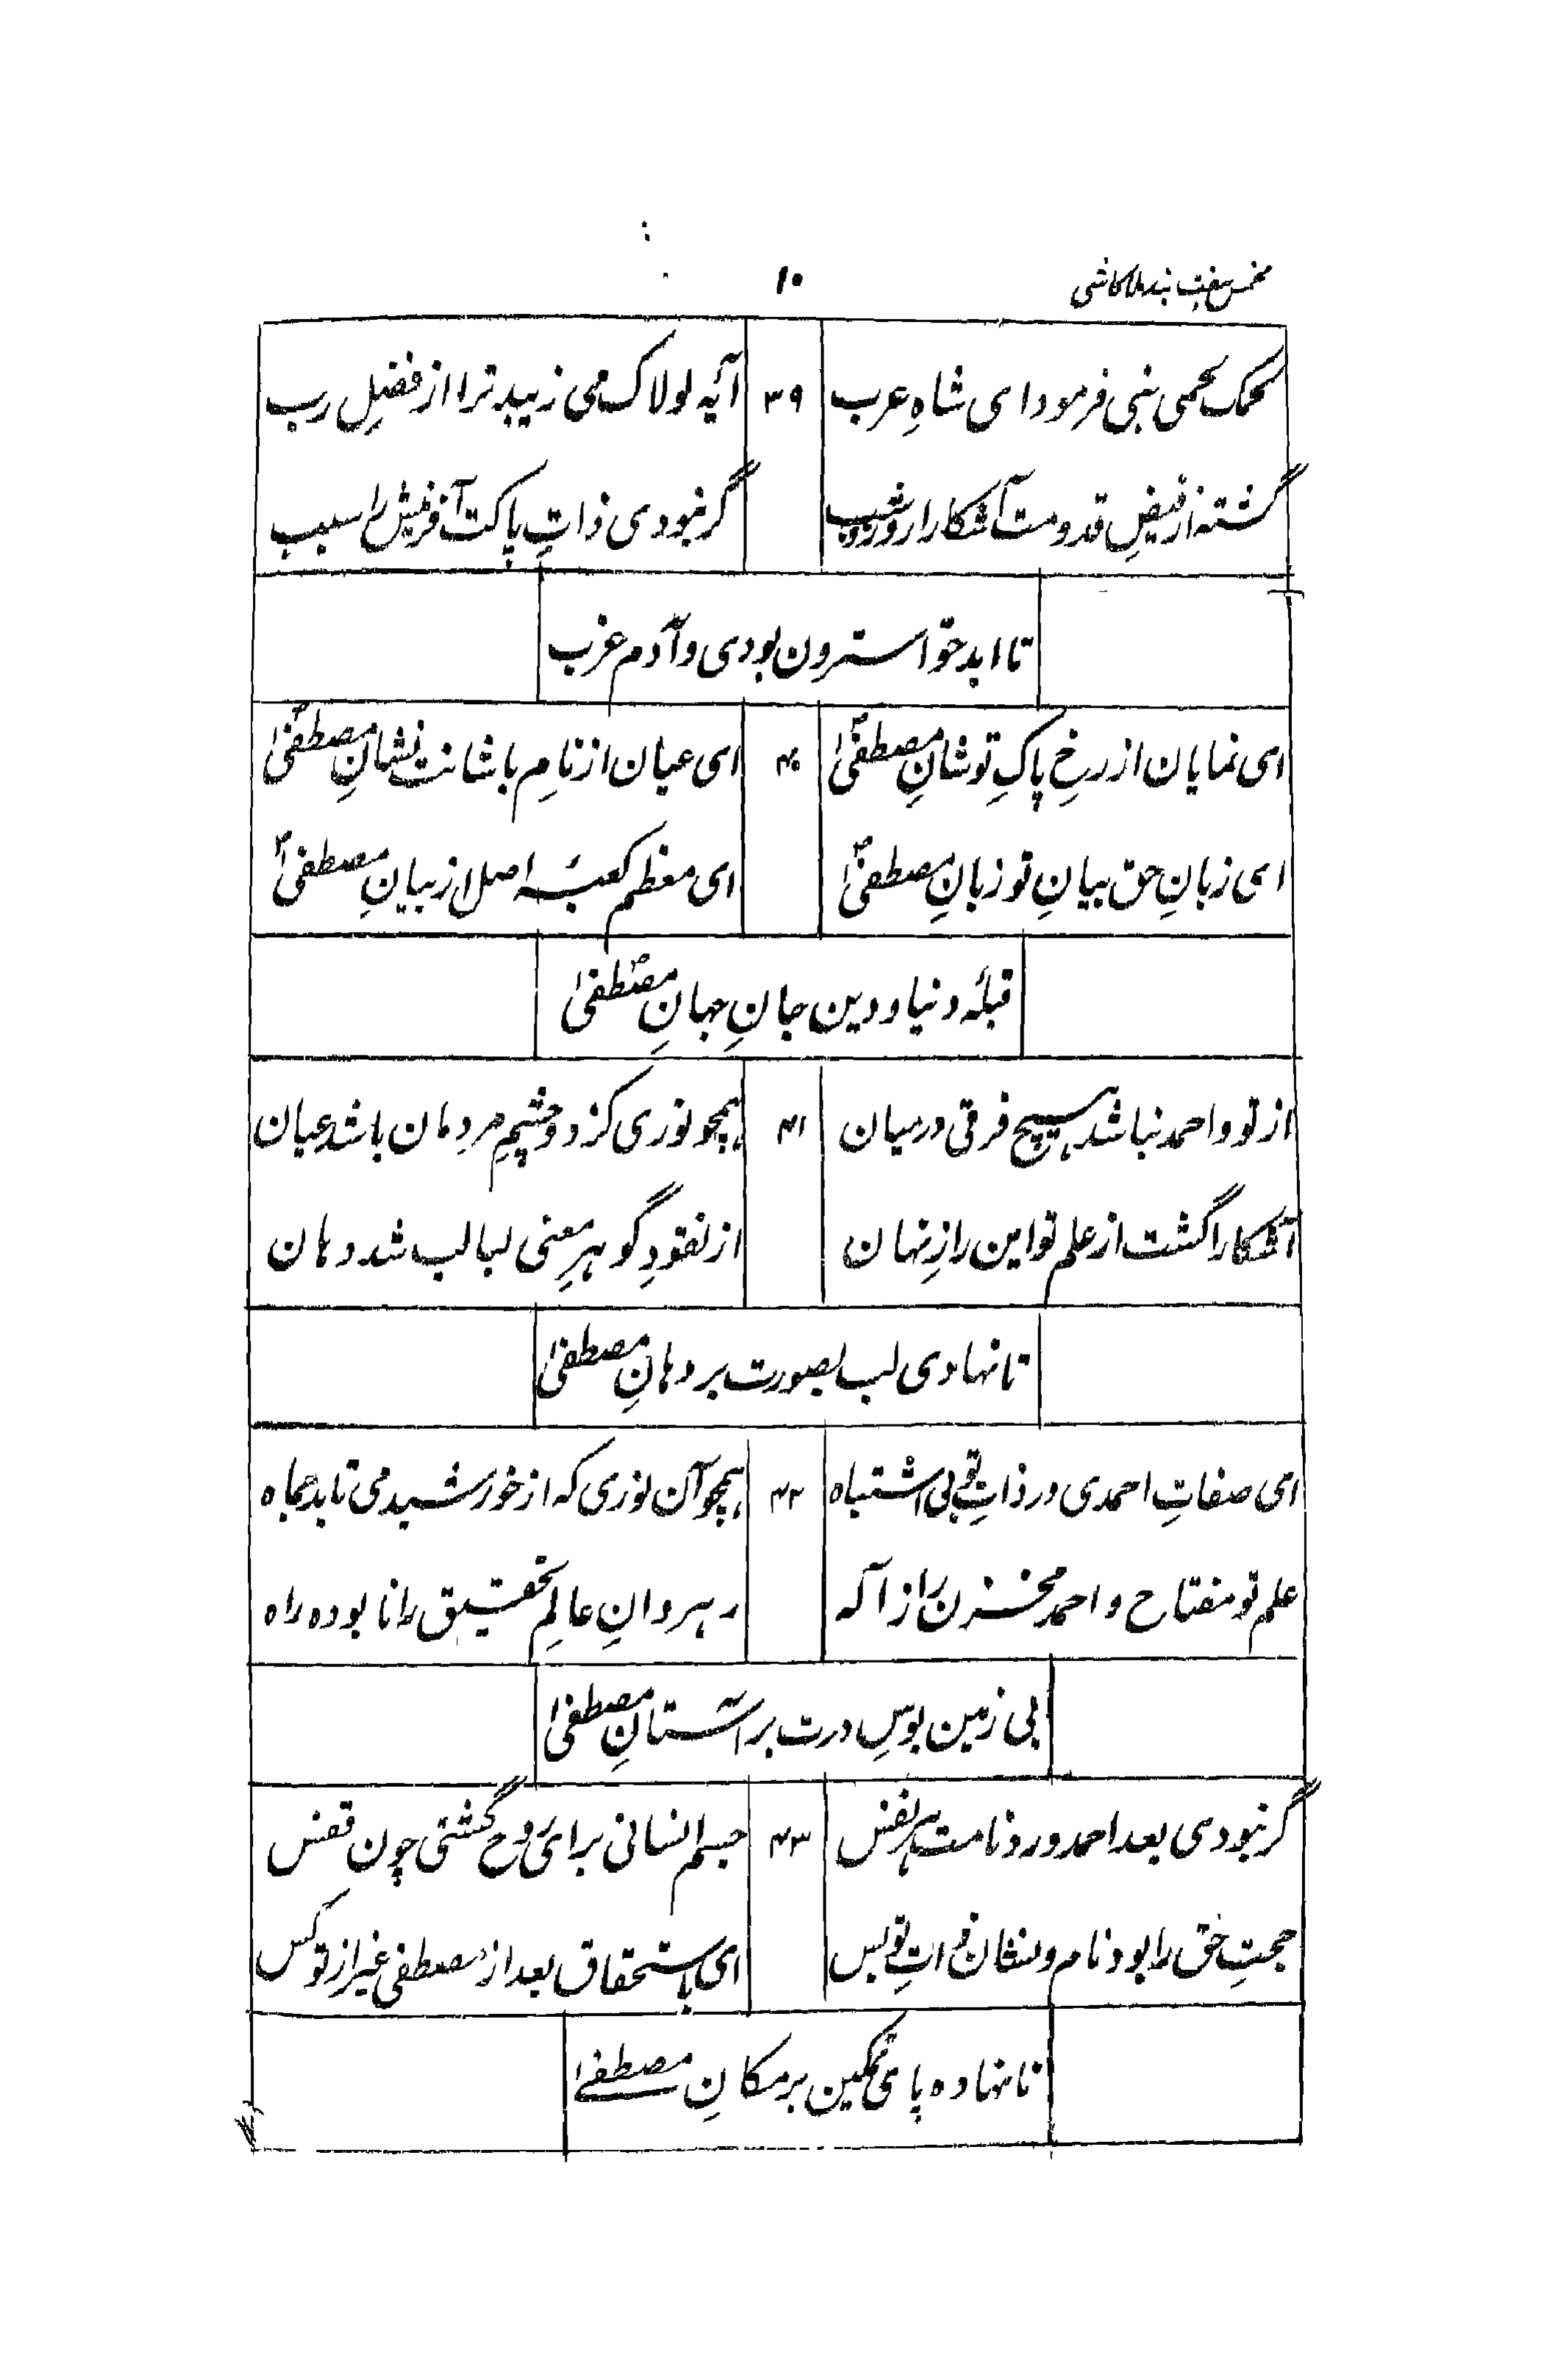 مخمس ہفت بند ملا کاشی ۱۰
لحمک لحمی نبی فرمود ای شاہِ عرب ۳۹ آئیہ لولاک می زیبد ترا از فضلِ رب
گشتہ از فیضِ قدومت آشکارا روز و شب گر نبودی ذاتِ پاکت آفرینش را سبب
تا ابد حوا سترون بودی و آدم عزب
ای نمایان از رخِ پاکِ تو شانِ مصطفیٰؐ ۴۰ ای عیان از نامِ با شانت نشانِ مصطفیٰؐ
ای زبانِ حق بیانِ تو زبانِ مصطفیٰؐ ای معظم کعبۂ اصل از بیانِ مصطفیٰؐ
قبلۂ دنیا و دین جانِ جہانِ مصطفیٰؐ
از تو و احمد نباشد ہیچ فرقی درمیان ۴۱ ہمچو نوری کز دو چشمِ مردمان باشد عیان
آشکارا گشت از علم تو این رازِ نہان از نقودِ گوہرِ معنی لبالب شد دہان
تا نہادی لب بصورت بر دہانِ مصطفیٰ
ای صفاتِ احمدی در ذاتِ تو بی اشتباہ ۴۲ ہمچو آن نوری کہ از خورشید می تابد بماہ
علم تو مفتاح و احمد مخزن راز آلہ رہروانِ عالمِ تحقیق را نا بودہ راہ
بی زمین بوسِ درت بر آستانِ مصطفیٰ
گر نبودی بعد احمد ورد نامت ہر نفس ۴۳ جسم انسانی برای روح گشتی چون قفس
حجتِ حق را بود نام و نشان ذاتِ تو بس ای باستحقاق بعد از مصطفی غیر از تو کس
نا نہادہ پای تمکین بر مکانِ مصطفیٰ